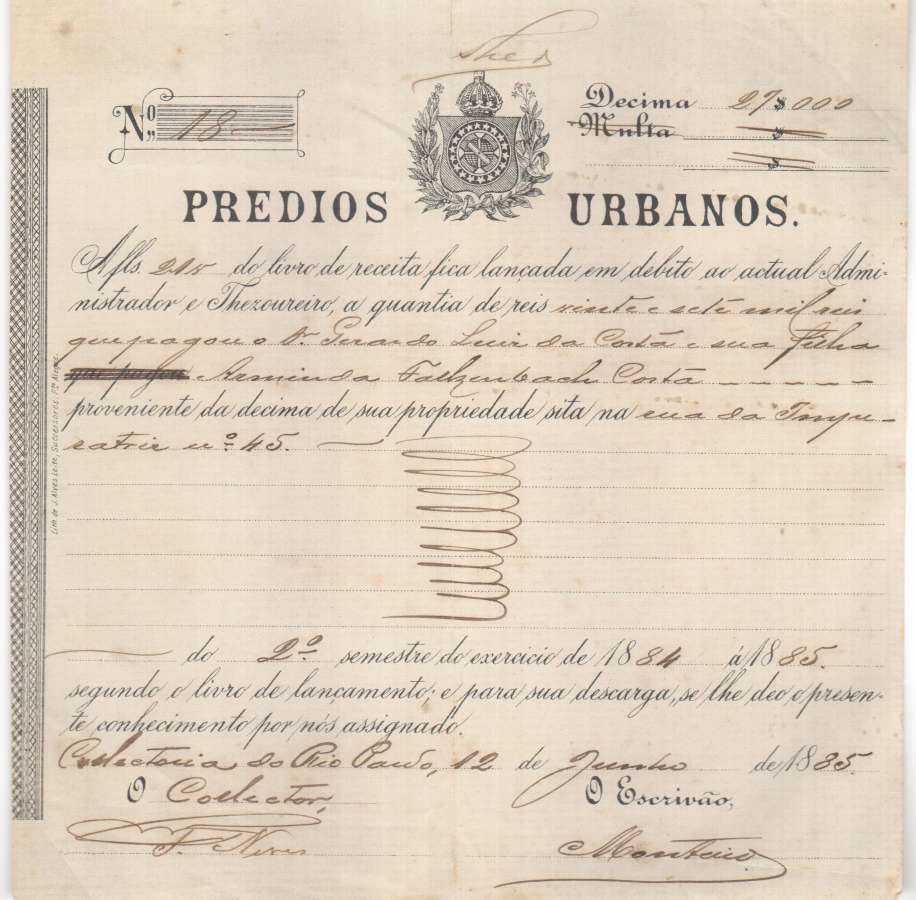 Nº 18
Decima 27$000
Multa $
$
PREDIOS URBANOS.
A fls. 215 do livro de receita fica lançada em debito ao actual Admi-
nistrador e Thezoureiro, a quantia de reis vinte e sete mil reis
que pagou o Sr. Gerardo Luiz da Costa e sua Filha
Arminda Falkenbach Costa
proveniente da decima de sua propriedade sita na rua da Impe-
ratriz nº 45.
Lith de J. Alves Leite, Successores. Pto. Alegre
do 2º semestre do exercicio de 1884 á 1885.
segundo o livro de lançamento; e para sua descarga, se lhe deo o presen-
te conhecimento por nós assignado.
Collectoria do Rio Pardo, 12 de Junho de 1885.
O Collector, O Escrivão,
F. Neves